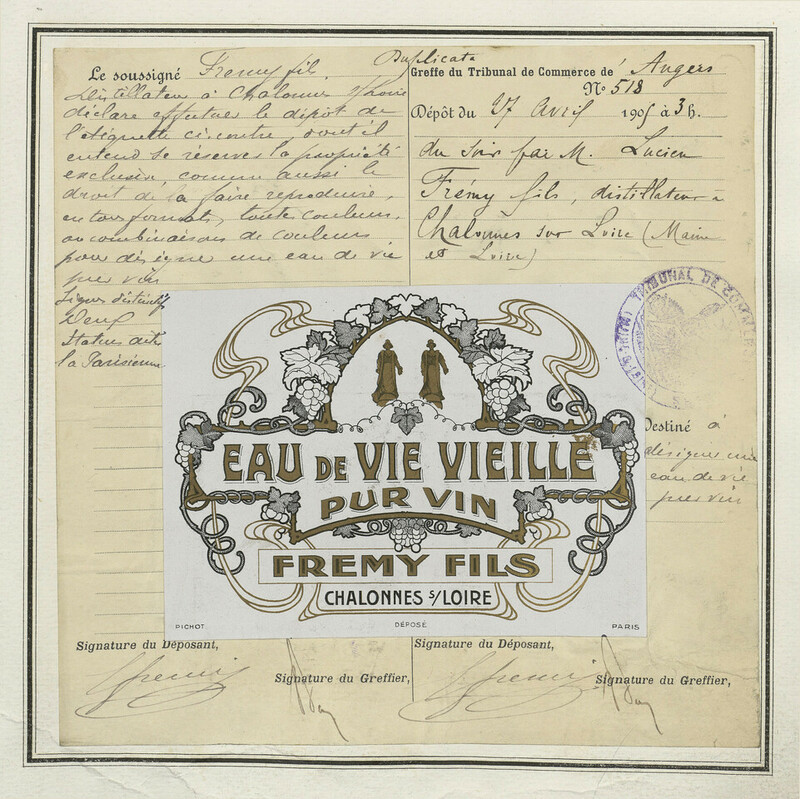 Duplicata
Le soussigné Fremy fils
Distillateur à Chalonnes s/Loire
déclare effectuer le dépôt de
l'étiquette ci-contre, dont il
entend se réserver la propriété
exclusive comme aussi le
droit de la faire reproduire,
en tous formats, toute couleurs,
ou combinaisons de couleurs
pour désigner une eau de vie
pur vin
Signes distinctifs
Deux
Statues dites
la Parisienne
Greffe du Tribunal de Commerce de Angers
No 518
Dépôt du 27 Avril 1905 à 3 h.
du soir par M. Lucien
Frémy fils, distillateur à
Chalonnes sur Loire (Maine
et Loire)
TRIBUNAL DE COMMERCE
Destiné à
désigner une
eau de vie
pur vin
EAU DE VIE VIEILLE
PUR VIN
FREMY FILS
CHALONNES S/LOIRE
PICHOT DÉPOSÉ PARIS
Signature du Déposant,
Signature du Greffier,
Signature du Déposant,
Signature du Greffier,